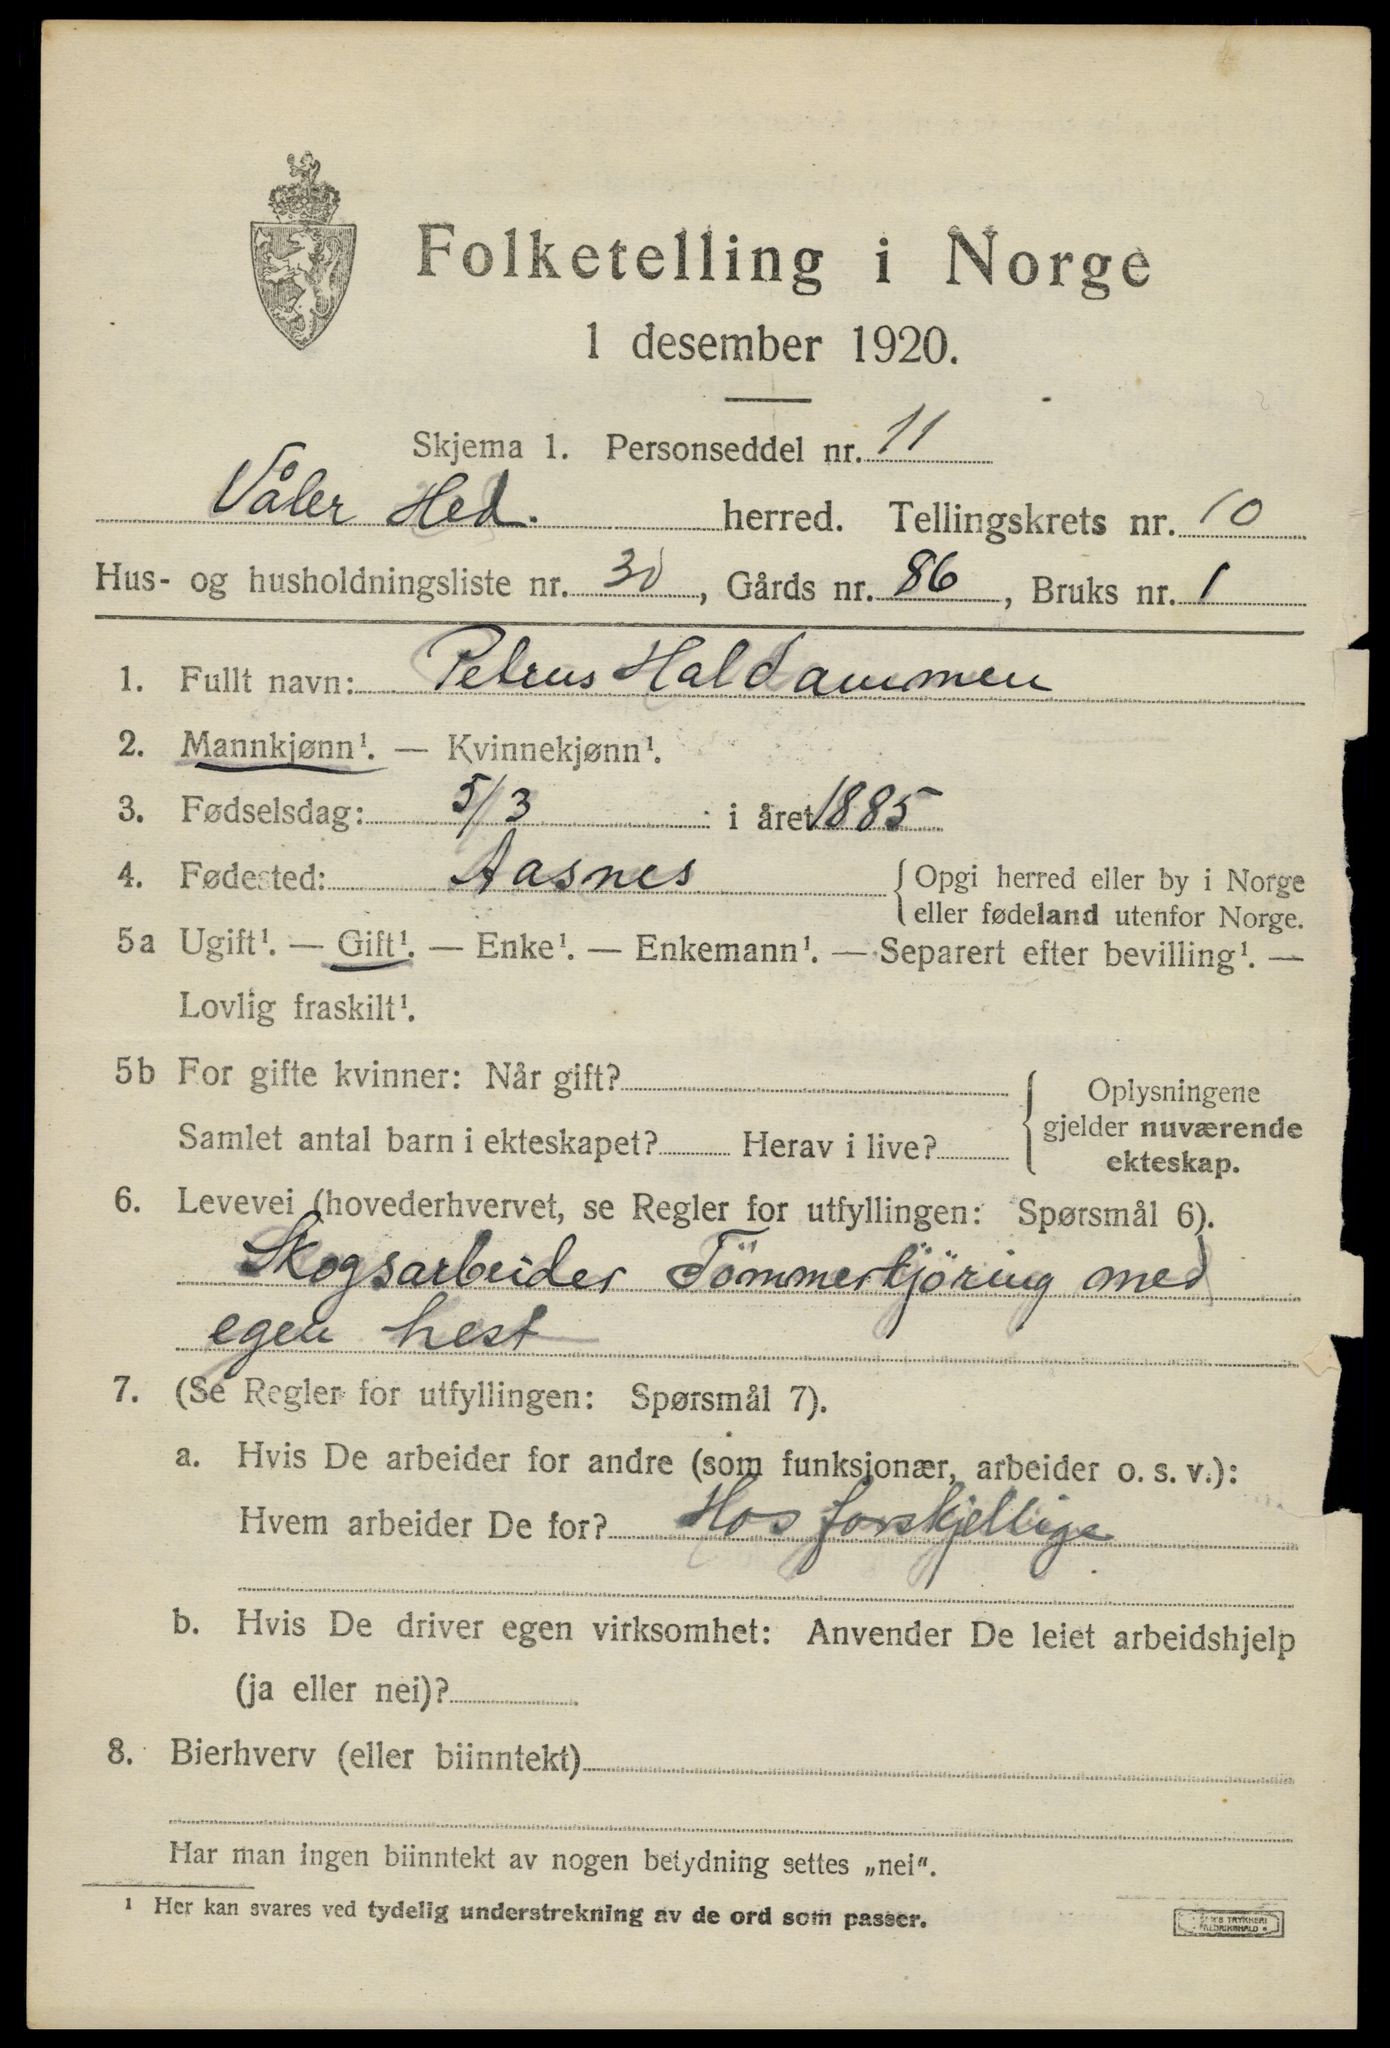 Folketelling i Norge
1 desember 1920.
Skjema 1. Personseddel nr. 11
Våler Hed. herred. Tellingskrets nr. 10
Hus- og husholdningsliste nr. 30, Gårds nr. 86, Bruks nr. 1
1. Fullt navn: Petrus Haldammen
2. Mannkjønn¹. — Kvinnekjønn¹.
3. Fødselsdag: 5/3 i året 1885
4. Fødested: Aasnes {Opgi herred eller by i Norge
eller fødeland utenfor Norge.
5a Ugift¹. — Gift¹. — Enke¹. — Enkemann¹. — Separert efter bevilling¹. —
Lovlig fraskilt¹.
5b For gifte kvinner: Når gift?
Samlet antal barn i ekteskapet? Herav i live?
Oplysningene
gjelder nuværende
ekteskap.
6. Levevei (hovederhvervet, se Regler for utfyllingen: Spørsmål 6).
Skogsarbeider Tömmerkjöring med
egen hest
7. (Se Regler for utfyllingen: Spørsmål 7).
a. Hvis De arbeider for andre (som funksjonær, arbeider o. s. v.):
Hvem arbeider De for? Hos forskjellige
b. Hvis De driver egen virksomhet: Anvender De leiet arbeidshjelp
(ja eller nei)?
8. Bierhverv (eller biinntekt)
Har man ingen biinntekt av nogen betydning settes „nei".
¹ Her kan svares ved tydelig understrekning av de ord som passer.
TRYKKERI